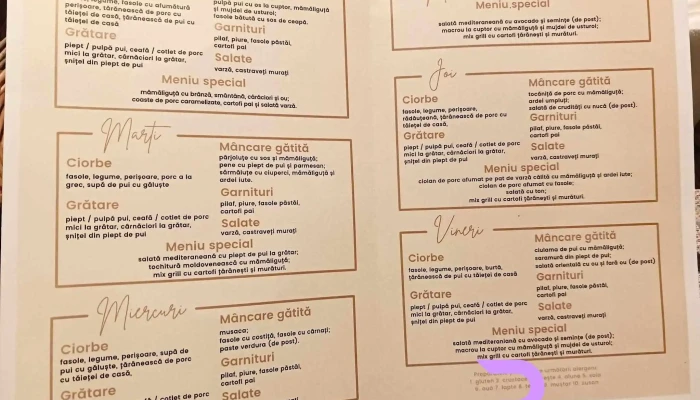 legume, fasole cu afumătură
perișoare, țărănească de porc cu
tăieței de casă, țărănească de pui cu
tăieței de casă
Grătare
piept / pulpă pui, ceafă / cotlet de porc
mici la grătar, cârnăciori la grătar,
șnițel din piept de pui
pulpă pui cu os la cuptor, mămăliguță
și mujdei de usturoi;
fasole bătută cu sos de ceapă.
Garnituri
pilaf, piure, fasole păstăi,
cartofi pai
Salate
varză, castraveți murați
Meniu special
mămăliguță cu brânză, smântână, cârnăciori și ou;
coaste de porc caramelizate, cartofi pai și salată varză.
Marți
Ciorbe
fasole, legume, perișoare, porc a la
grec, supă de pui cu găluște
Grătare
piept / pulpă pui, ceafă / cotlet de porc
mici la grătar, cârnăciori la grătar,
șnițel din piept de pui
Mâncare gătită
pârjoluțe cu sos și mămăliguță;
pene cu piept de pui și parmesan;
sărmăluțe cu ciuperci, mămăliguță și
ardei iute.
Garnituri
pilaf, piure, fasole păstăi,
cartofi pai
Salate
varză, castraveți murați
Meniu special
salată mediteraneană cu piept de pui la grătar;
tochitură moldovenească cu mămăliguță;
mix grill cu cartofi țărănești și murături.
Miercuri
Ciorbe
fasole, legume, perișoare, supă de
pui cu găluște, țărănească de pui
cu tăieței de casă.
Grătare
Mâncare gătită
musaca;
fasole cu costiță, fasole cu cârnați;
paste verdura (de post).
Garnituri
pilaf, piure, fasole păstăi,
cartofi pai
Salate
Meniu special
salată mediteraneană cu avocado și semințe (de post);
macrou la cuptor cu mămăliguță și mujdei de usturoi;
mix grill cu cartofi țărănești și murături.
Joi
Ciorbe
fasole, legume, perișoare,
rădăuțeană, țărănească de porc cu
tăieței de casă,
Grătare
piept / pulpă pui, ceafă / cotlet de porc
mici la grătar, cârnăciori la grătar,
șnițel din piept de pui
Mâncare gătită
tocăniță de porc cu mămăliguță;
ardei umpluți;
salată de crudități cu nucă (de post).
Garnituri
pilaf, piure, fasole păstăi,
cartofi pai
Salate
varză, castraveți murați
Meniu special
ciolan de porc afumat pe pat de varză călită cu mămăliguță și ardei iute;
ciolan de porc afumat cu fasole;
salată cu ton;
mix grill cu cartofi țărănești și murături.
Vineri
Ciorbe
fasole, legume, perișoare, burtă,
țărănească de pui cu tăieței de casă
Grătare
piept / pulpă pui, ceafă / cotlet de porc
mici la grătar, cârnăciori la grătar,
șnițel din piept de pui
Mâncare gătită
ciulama de pui cu mămăliguță;
saramură din piept de pui;
salată orientală cu ou și fară ou (de post)
Garnituri
pilaf, piure, fasole păstăi,
cartofi pai
Salate
varză, castraveți murați
Meniu special
salată mediteraniană cu avocado și semințe (de post);
macrou la cuptor cu mămăliguță și mujdei de usturoi;
mix grill cu cartofi țărănești și murături.
alergeni
1. gluten 2. 4. ouă